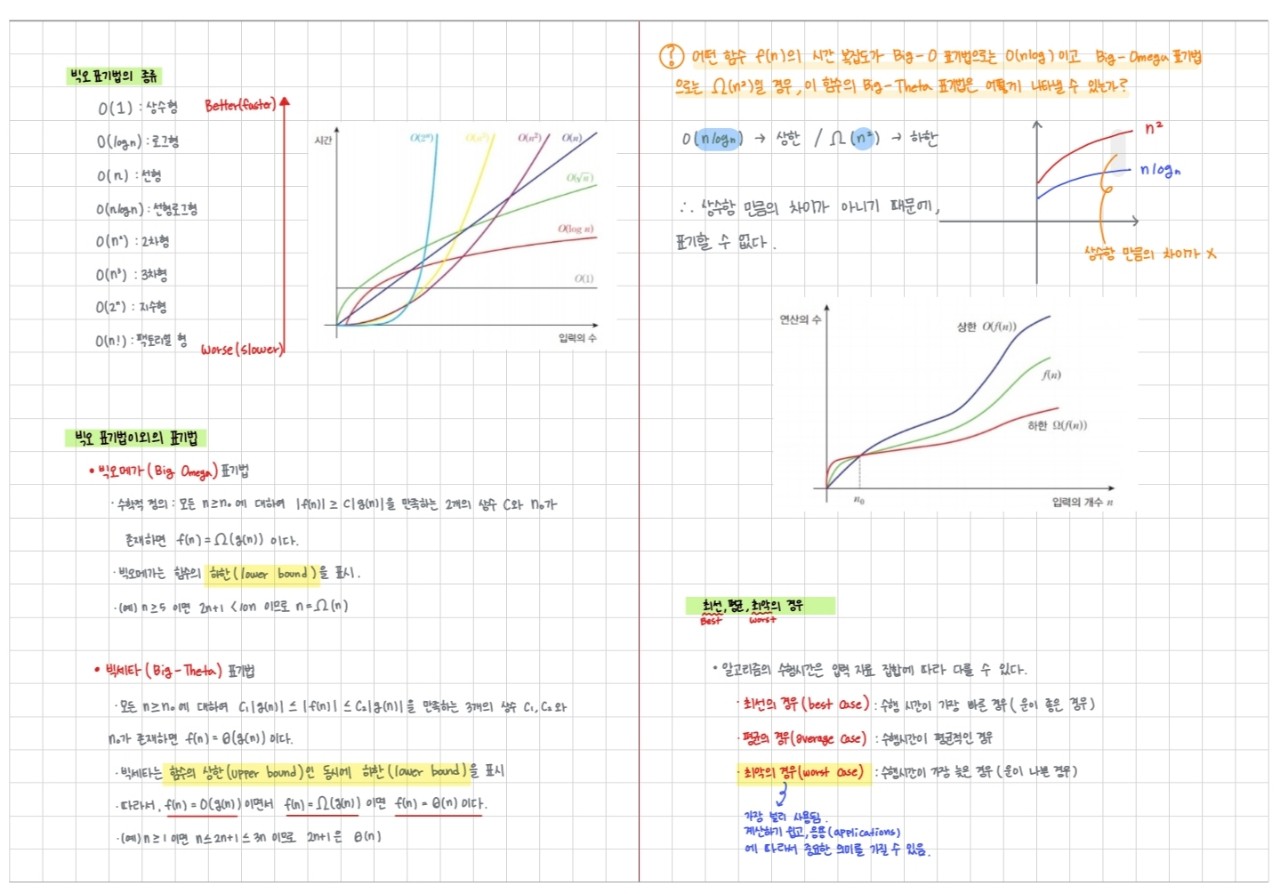 빅오 표기법의 종류
O(1) : 상수형
Better(faster)
O(logn) : 로그형
O(n) : 선형
O(nlogn) : 선형로그형
O(n²) : 2차형
O(n³) : 3차형
O(2ⁿ) : 지수형
O(n!) : 팩토리얼 형
Worse(slower)
시간
O(2ⁿ)
O(n³)
O(n²)
O(n)
O(√n)
O(log n)
O(1)
입력의 수
빅오 표기법이외의 표기법
• 빅오메가 (Big Omega) 표기법
· 수학적 정의 : 모든 n≥n₀ 에 대하여 |f(n)| ≥ C|g(n)|을 만족하는 2개의 상수 C와 n₀가
존재하면 f(n) = Ω(g(n)) 이다.
· 빅오메가는 함수의 하한(lower bound)을 표시.
· (예) n≥5 이면 2n+1 <10n 이므로 n = Ω(n)
• 빅세타 (Big-Theta) 표기법
· 모든 n≥n₀에 대하여 C₁|g(n)| ≤ |f(n)| ≤ C₂|g(n)|을 만족하는 3개의 상수 C₁, C₂와
n₀가 존재하면 f(n) = θ(g(n))이다.
· 빅세타는 함수의 상한(upper bound)인 동시에 하한(lower bound)을 표시
· 따라서, f(n) = O(g(n))이면서 f(n) = Ω(g(n)) 이면 f(n) = θ(n)이다.
· (예) n≥1 이면 n≤2n+1≤3n 이므로 2n+1은 θ(n)
? 어떤 함수 f(n)의 시간 복잡도가 Big-O 표기법으로는 O(nlog)이고 Big-Omega 표기법
으로는 Ω(n²)일 경우, 이 함수의 Big-Theta 표기법은 어떻게 나타낼 수 있는가?
O(nlogn) → 상한 / Ω(n²) → 하한
∴ 상수항 만큼의 차이가 아니기 때문에,
표기할 수 없다.
n²
nlogn
상수항 만큼의 차이가 X
연산의 수
상한 O(f(n))
f(n)
하한 Ω(f(n))
n₀
입력의 개수 n
최선, 평균, 최악의 경우
Best
worst
• 알고리즘의 수행시간은 입력 자료 집합에 따라 다를 수 있다.
· 최선의 경우(best case) : 수행 시간이 가장 빠른 경우( 운이 좋은 경우)
· 평균의 경우(average case) : 수행시간이 평균적인 경우
· 최악의 경우(worst case) : 수행시간이 가장 늦은 경우 (운이 나쁜 경우)
가장 널리 사용됨.
계산하기 쉽고, 응용(applications)
에 따라서 중요한 의미를 가질 수 있음.